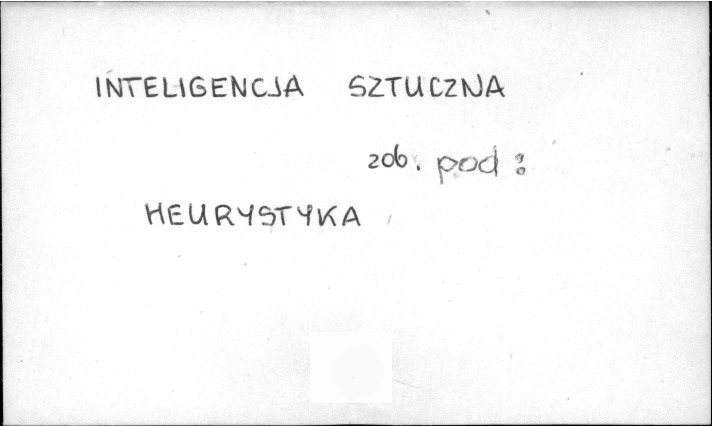 INTELIGENCJA SZTUCZNA
zob. pod:
HEURYSTYKA